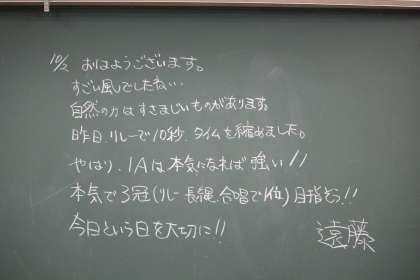 10/2 おはようございます。
すごい風でしたねぃ
自然の力はすさまじいものがあります。
昨日、リレーで10秒、タイムを縮めました。
やはり、1Aは本気になれば強い!!
本気で3冠(リレー、長縄、合唱で1位)目指そう!!
今日という日を大切に!!
遠藤